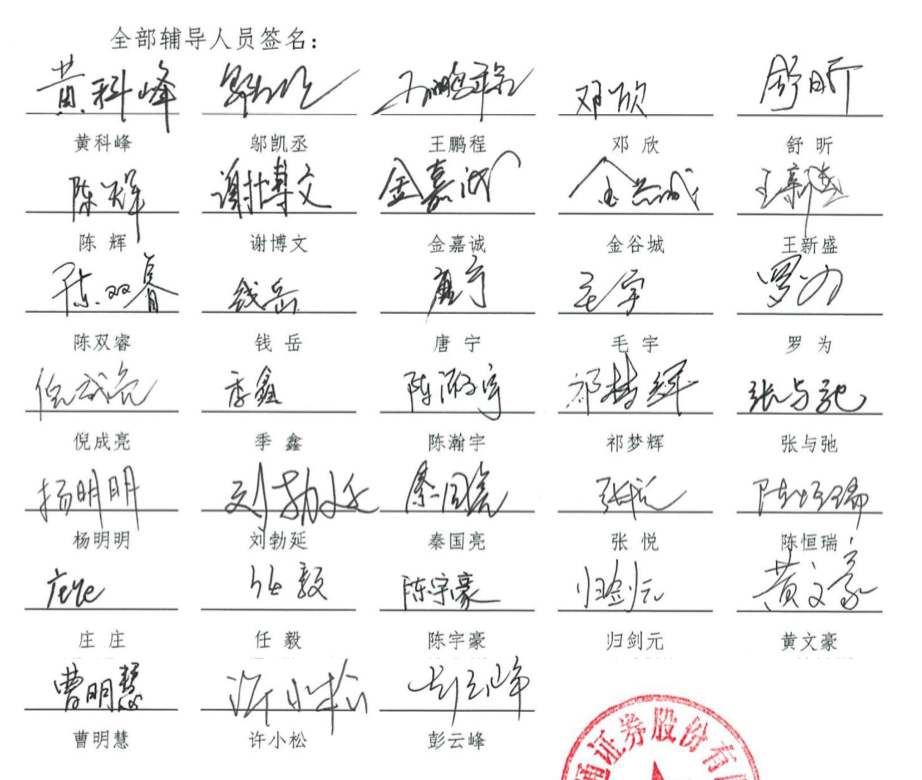 全部辅导人员签名：
黄科峰 邬凯丞 王鹏程 邓欣 舒昕
黄科峰 邬凯丞 王鹏程 邓 欣 舒 昕
陈辉 谢博文 金嘉诚 金谷城 王新盛
陈 辉 谢博文 金嘉诚 金谷城 王新盛
陈双睿 钱岳 唐宁 毛宇 罗为
陈双睿 钱 岳 唐 宁 毛 宇 罗 为
倪成亮 季鑫 陈瀚宇 祁梦辉 张与弛
倪成亮 季 鑫 陈瀚宇 祁梦辉 张与弛
杨明明 刘勃延 秦国亮 张悦 陈恒瑞
杨明明 刘勃延 秦国亮 张 悦 陈恒瑞
庄庄 任毅 陈宇豪 归剑元 黄文豪
庄 庄 任 毅 陈宇豪 归剑元 黄文豪
曹明慧 许小松 彭云峰
曹明慧 许小松 彭云峰
通证券股份有